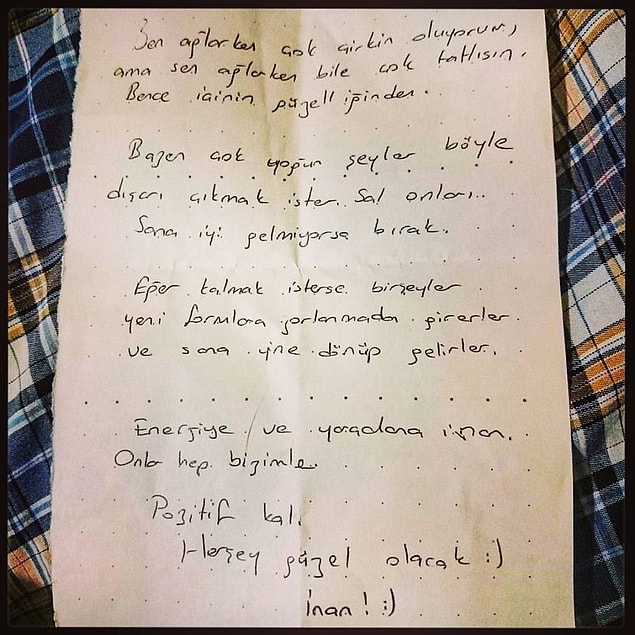 Ben ağlarken çok çirkin oluyorum,
ama sen ağlarken bile çok tatlısın.
Bence içinin güzelliğinden.
Bazen çok yoğun şeyler böyle
dışarı çıkmak ister. Sal onları..
Sana iyi gelmiyorsa bırak.
Eğer kalmak isterse birşeyler
yeni formlara zorlanmada girerler
ve sana yine dönüp gelirler.
Enerjiye ve yaradana inan.
Onlar hep bizimle.
Pozitif kal.
Herşey güzel olacak :)
inan! :)